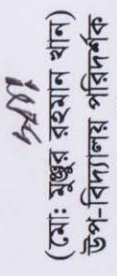 (মোঃ মুঞ্জুর রহমান খান)
উপ-বিদ্যালয় পরিদর্শক